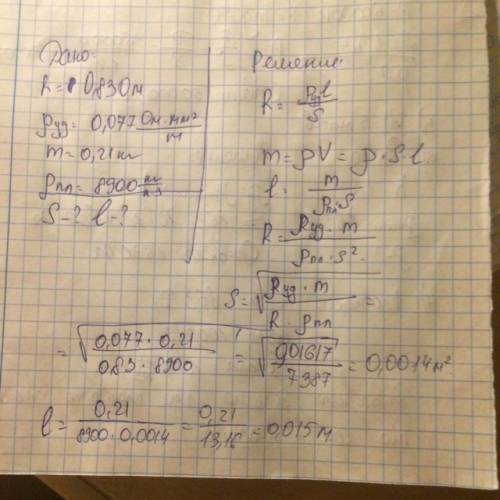 Дано:
R = 0,830 Ом
ρуд = 0,077 Ом·мм²/м
m = 0,21 кг
ρпл = 8900 кг/м³
S - ? l - ?
Решение:
R = ρуд l / S
m = ρV = ρ · S · l
l = m / ρпл · S
R = ρуд · m / ρпл · S²
S = √(ρуд · m / R · ρпл) =
= √(0,077 · 0,21 / 0,83 · 8900) = √(0,01617 / 7387) = 0,0014 м²
l = 0,21 / 8900 · 0,0014 = 0,21 / 13,16 = 0,015 м